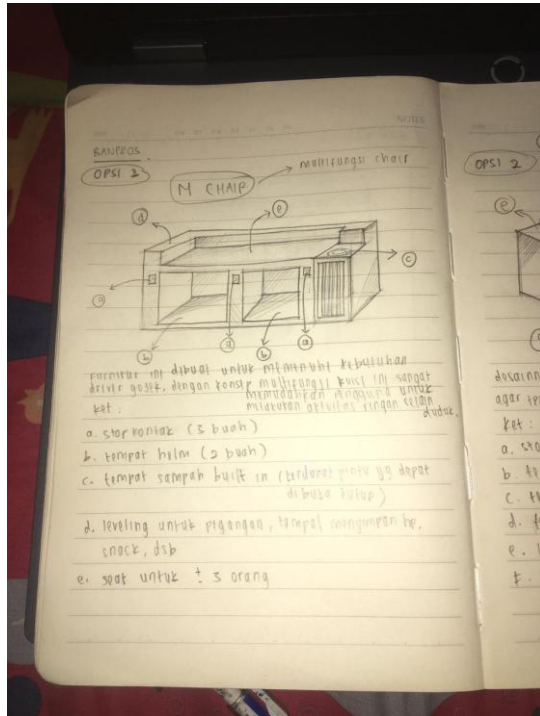 NOTES
BANPROS.
OPSI 2
M CHAIR → multifungsi chair
d
e
c
a
b
a
b
a
Furnitur ini dibuat untuk memenuhi kebutuhan
driver gosek, dengan konsep multifungsi kursi ini sangat
memudahkan pengguna untuk
melakukan aktivitas ringan selain
duduk.
ket :
a. stop kontak (3 buah)
b. tempat helm (2 buah)
c. tempat sampah built in (terdapat pintu yg dapat
dibuka tutup)
d. leveling untuk pegangan, tempat menyimpan hp,
snack, dsb
e. seat untuk ± 3 orang
OPSI 2
e
desainn
agar
ket :
a. sto
b. te
c.
d.
e.
f.